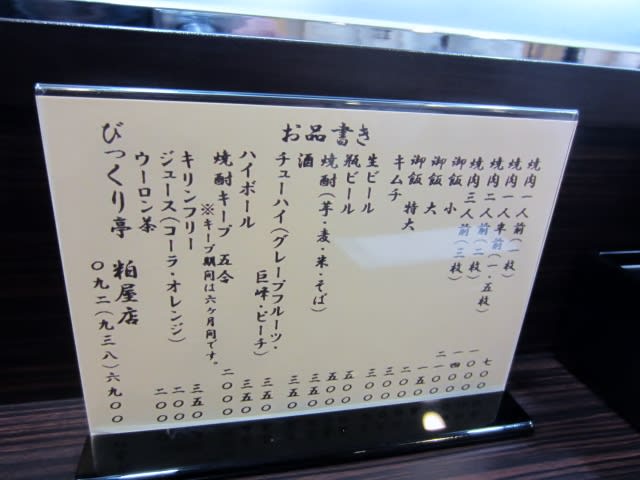 お品書き
焼肉一人前(一枚) 七〇〇
焼肉一人半前(一・五枚)
焼肉二人前(二枚) 一四〇〇
焼肉三人前(三枚) 二一〇〇
御飯 小 一五〇
御飯 大 二〇〇
御飯 特大 三〇〇
キムチ 三〇〇
生ビール 五〇〇
瓶ビール 五〇〇
焼酎(芋・麦・米・そば) 三五〇
酒 三五〇
チューハイ(グレープフルーツ・
巨峰・ピーチ) 三五〇
ハイボール 三五〇
焼酎キープ 五合 二〇〇〇
※キープ期間は六ヶ月間です。
キリンフリー 三五〇
ジュース(コーラ・オレンジ) 二〇〇
ウーロン茶 二〇〇
びっくり亭 粕屋店
〇九二(九三八)六九〇〇